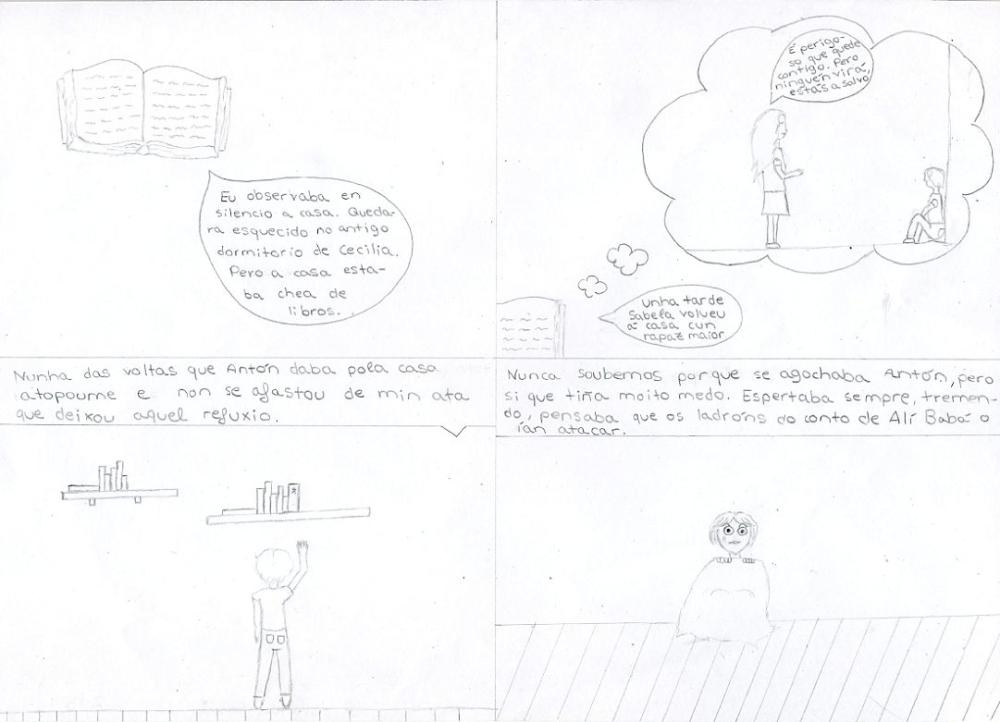 Eu observaba en
silencio a casa. Queda-
ra esquecido no antigo
dormitorio de Cecilia.
Pero a casa esta-
ba chea de
libros.
É perigo-
so que quede
contigo. Pero
ninguén virá,
estás a salvo.
Unha tarde
Sabela volveu
á casa cun
rapaz maior
Nunha das voltas que Antón daba pola casa
atopoume e non se afastou de min ata
que deixou aquel refuxio.
Nunca soubemos porque se agochaba Antón, pero
si que tiña moito medo. Espertaba sempre, tremen-
do, pensaba que os ladróns do conto de Alí Babá o
ían atacar.